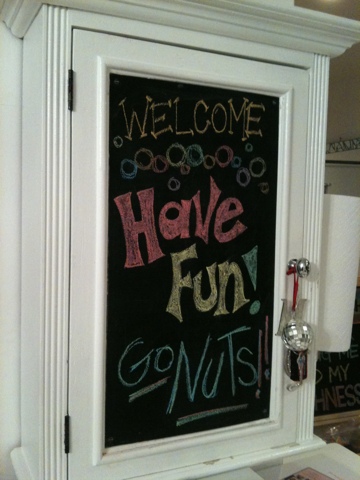 WELCOME
Have
Fun!
GO NUTS!!
ME
MY
HNESS